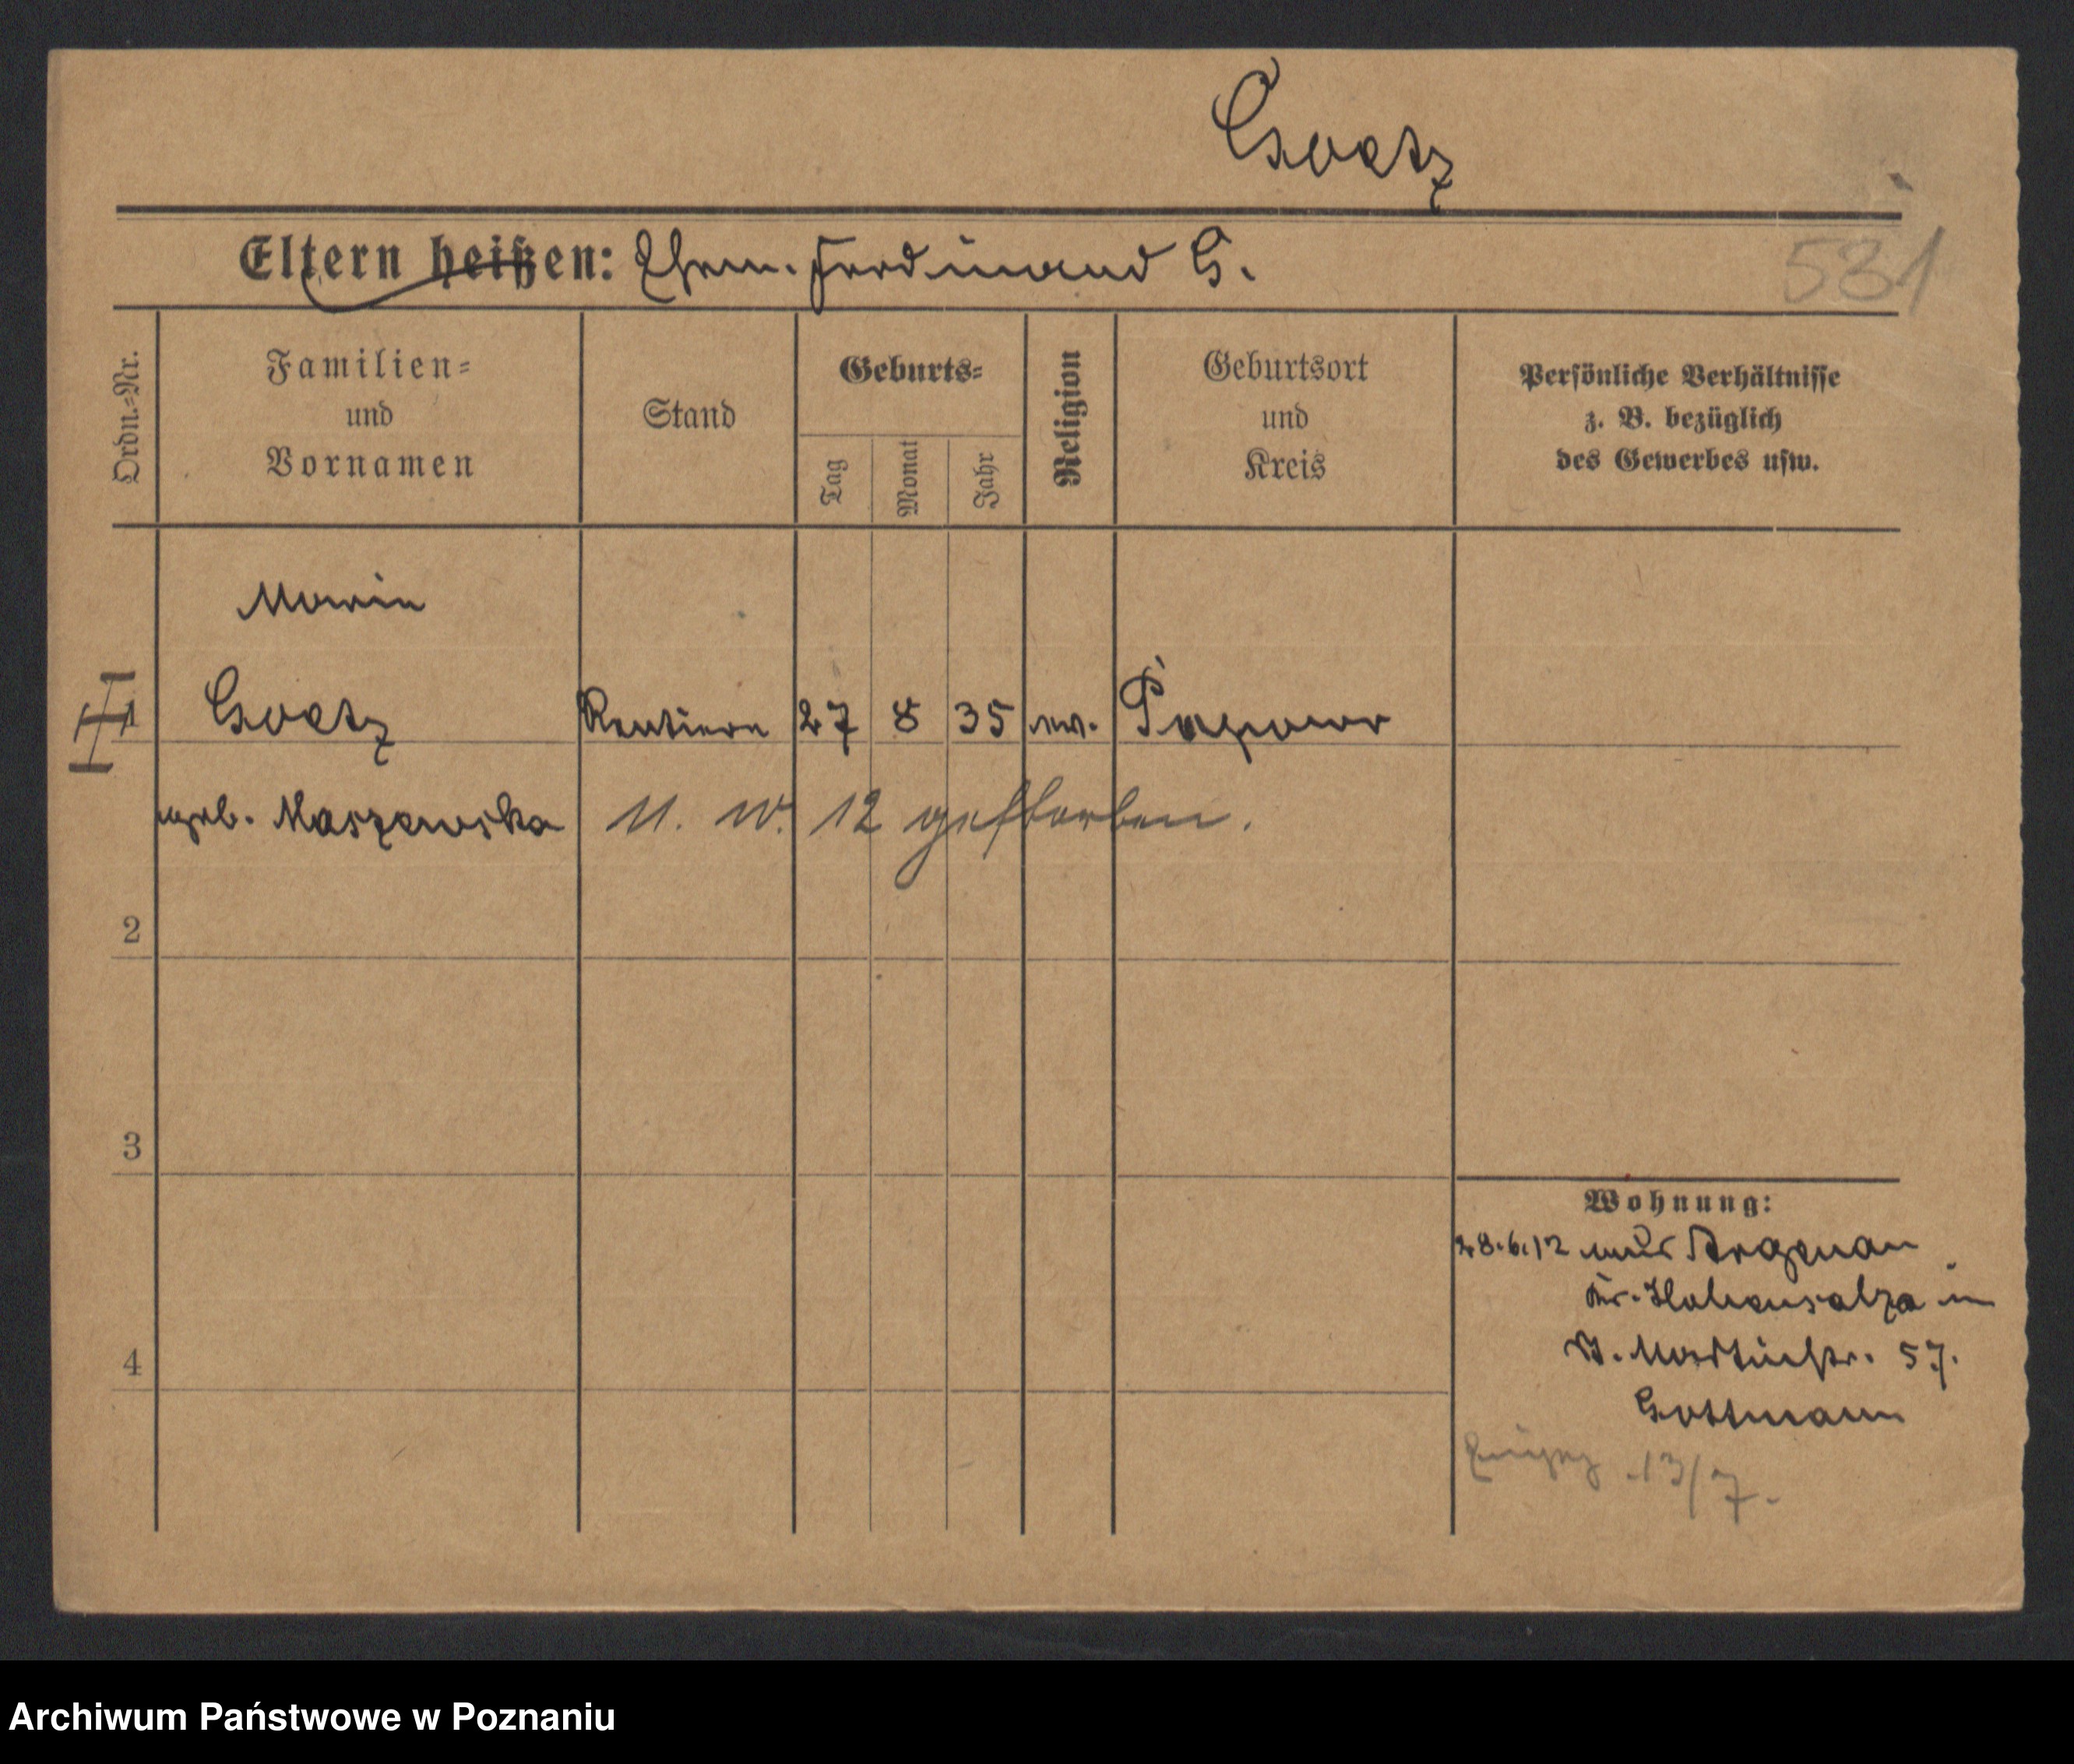 Goetz
Eltern heißen: Ehem. Ferdinand G.
531
Ordn.-Nr.
Familien-
und
Vornamen
Stand
Geburts-
Tag
Monat
Jahr
Religion
Geburtsort
und
Kreis
Persönliche Verhältnisse
z. B. bezüglich
des Gewerbes usw.
Maria
1 Goetz Rentiere 27 8 35 ev. Papowo
geb. Maszewska 11. 10. 12 gestorben.
2
3
Wohnung:
28.6.12 aus Argenau
Kr. Hohensalza in
St. Martinstr. 57.
4
Gottmann
13/7.
Archiwum Państwowe w Poznaniu